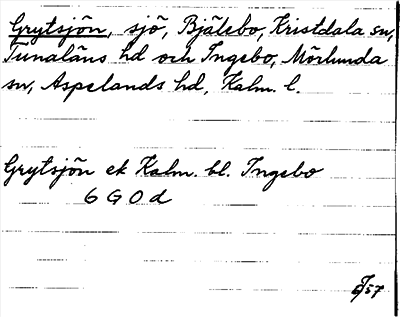 Grytsjön, sjö, Bjälebo, Kristdala sn,
Tunaläns hd och Ingebo, Mörlunda
sn, Aspelands hd, Kalm. l.
Grytsjön ek Kalm. bl. Ingebo
6 G O d
57